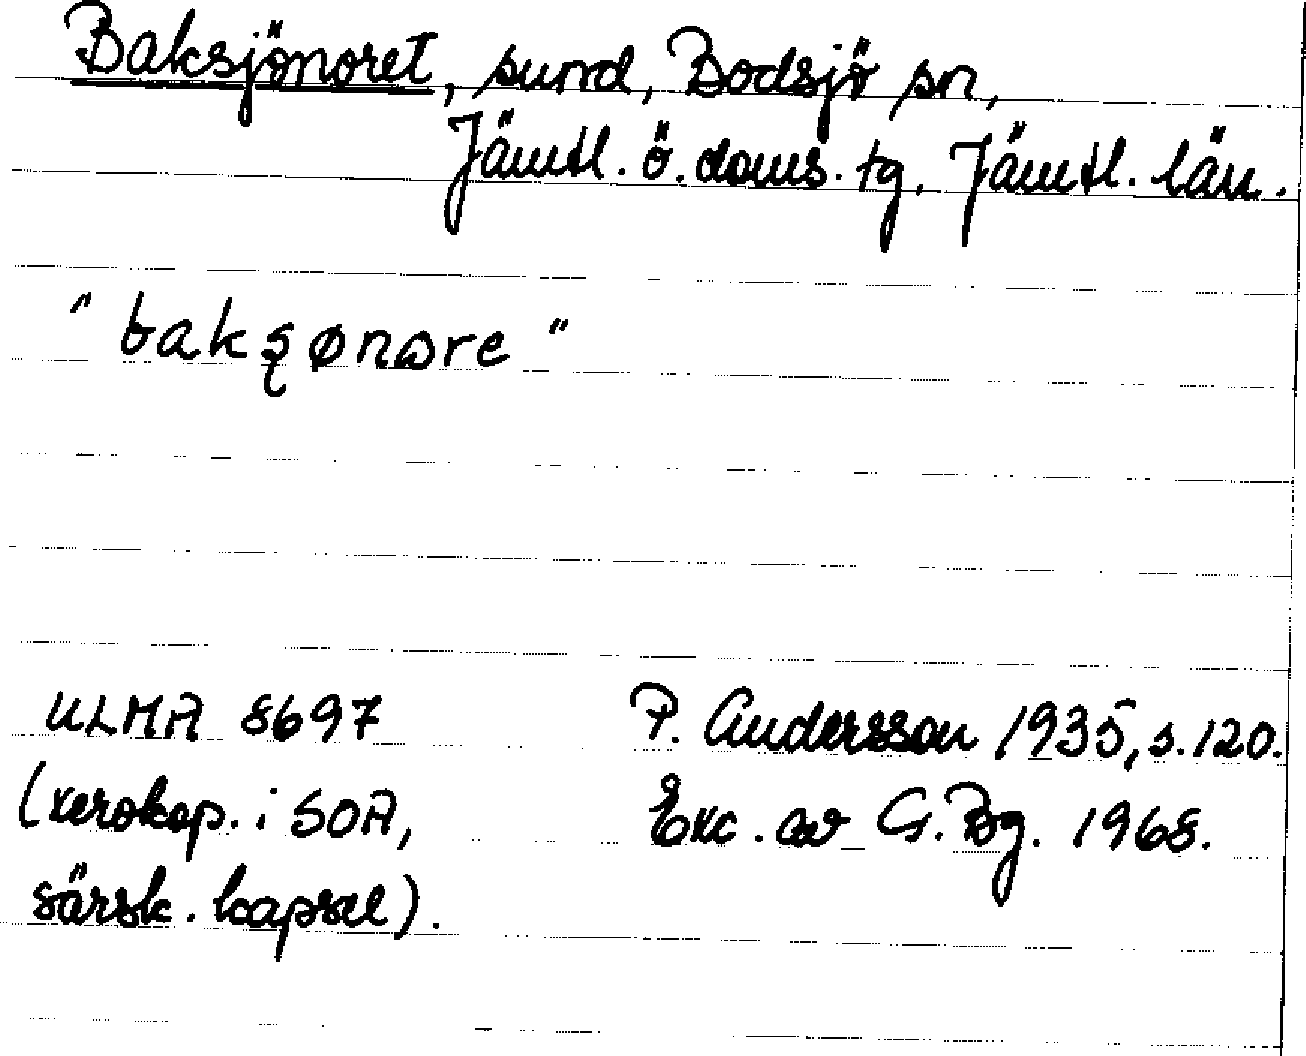 Baksjönoret, sund, Bodsjö sn,
Jämtl. ö. doms. tg, Jämtl. län.
"bakşønɷre"
ULMA 8697
P. Andersson 1935, s. 120.
(xerokop. i SOA,
Exc. av G. Bg. 1968.
särsk. kapsel).